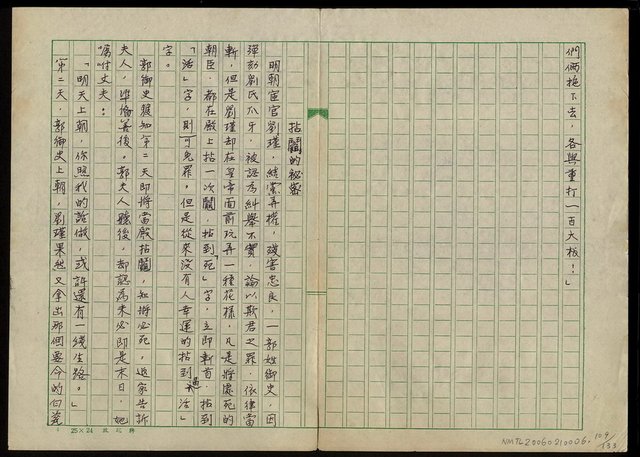 們倆拖下去，各與重打一百大板！」
拈鬮的秘密
明朝宦官劉瑾，結黨弄權，殘害忠良，一郭姓御史，因
彈劾劉氏爪牙，被認為糾舉不實，論以欺君之罪，依律當
斬，但是劉瑾却在皇帝面前玩弄一種花樣，凡是將處死的
朝臣，都在殿上拈一次鬮，拈到「死」字，立即斬首，拈到
「活」字，則可免罪。但是從來沒有人幸運的拈到過「活」
字。
郭御史獲知第二天即將當殿拈鬮，知將必死，返家告訴
夫人，準備善後。郭夫人聽後，却認為未必即是末日，她
囑咐丈夫：
「明天上朝，你照我的話做，或許還有一綫生路。」
第二天，郭御史上朝，劉瑾果然又拿出那個要命的白瓷
25×24
NMTL20060210006.
109/133